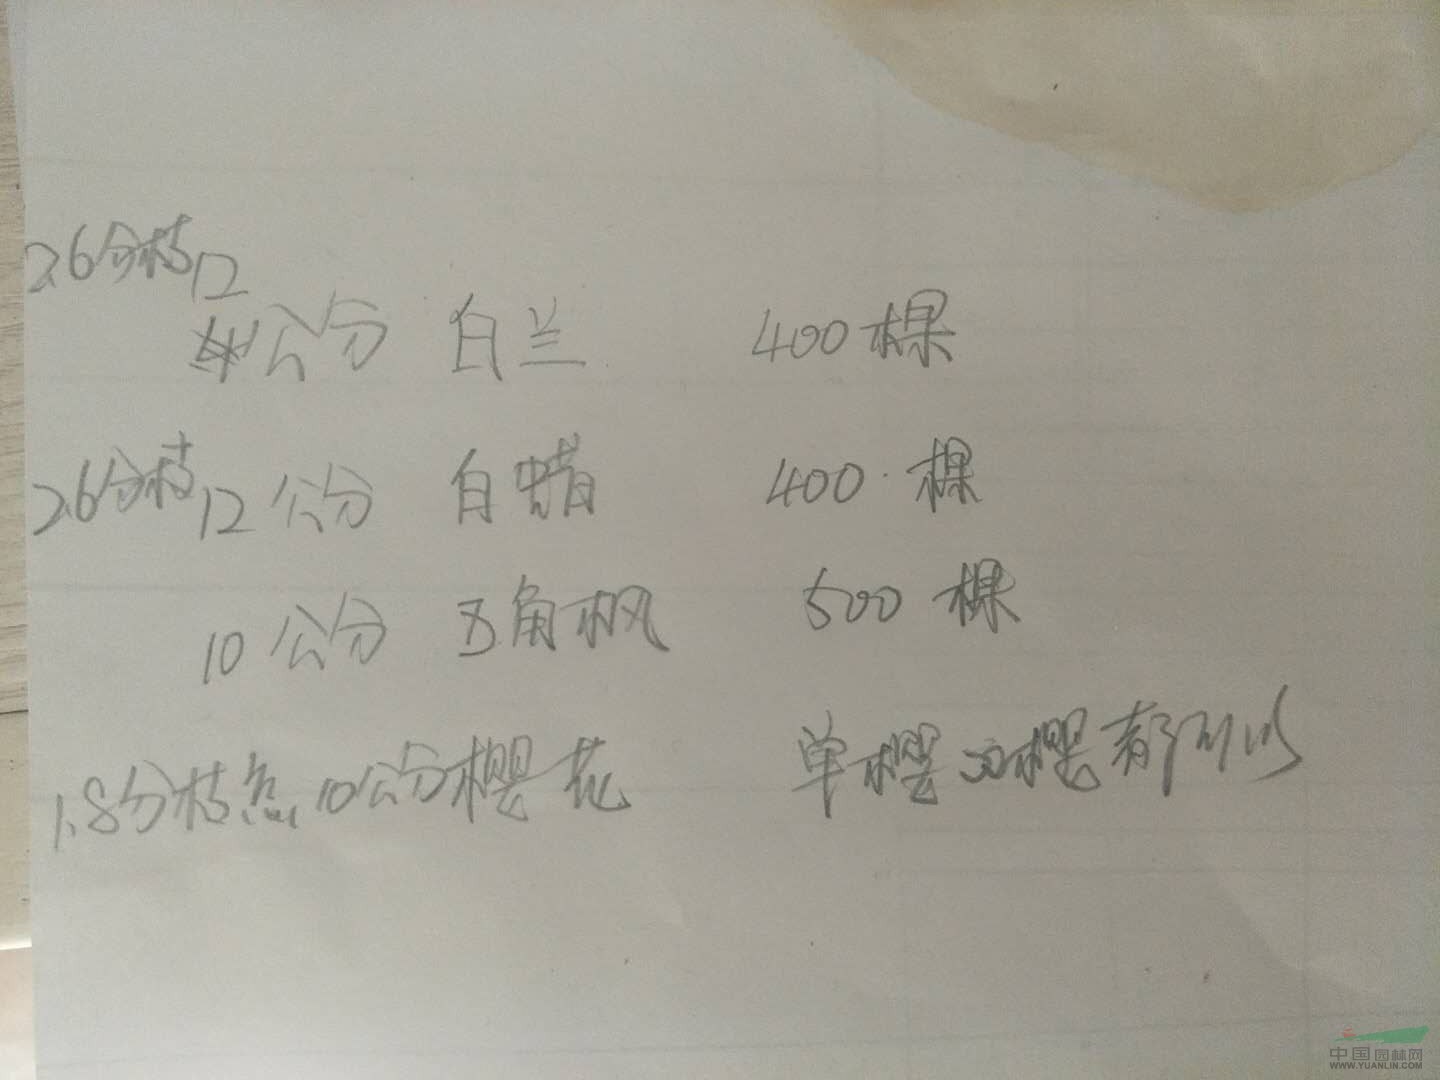 2.6分枝12
公分 白兰 400棵
2.6分枝12公分 白蜡 400棵
10公分 五角枫 500棵
1.8分枝点10公分樱花 单樱 双樱都可以
中国园林网
WWW.YUANLIN.COM